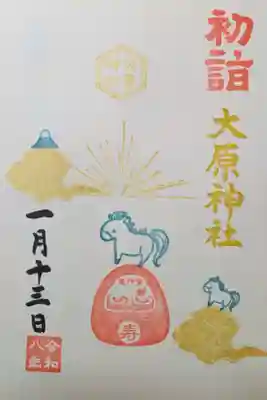 初詣
大原神社
一月十三日
令和
八年
寿